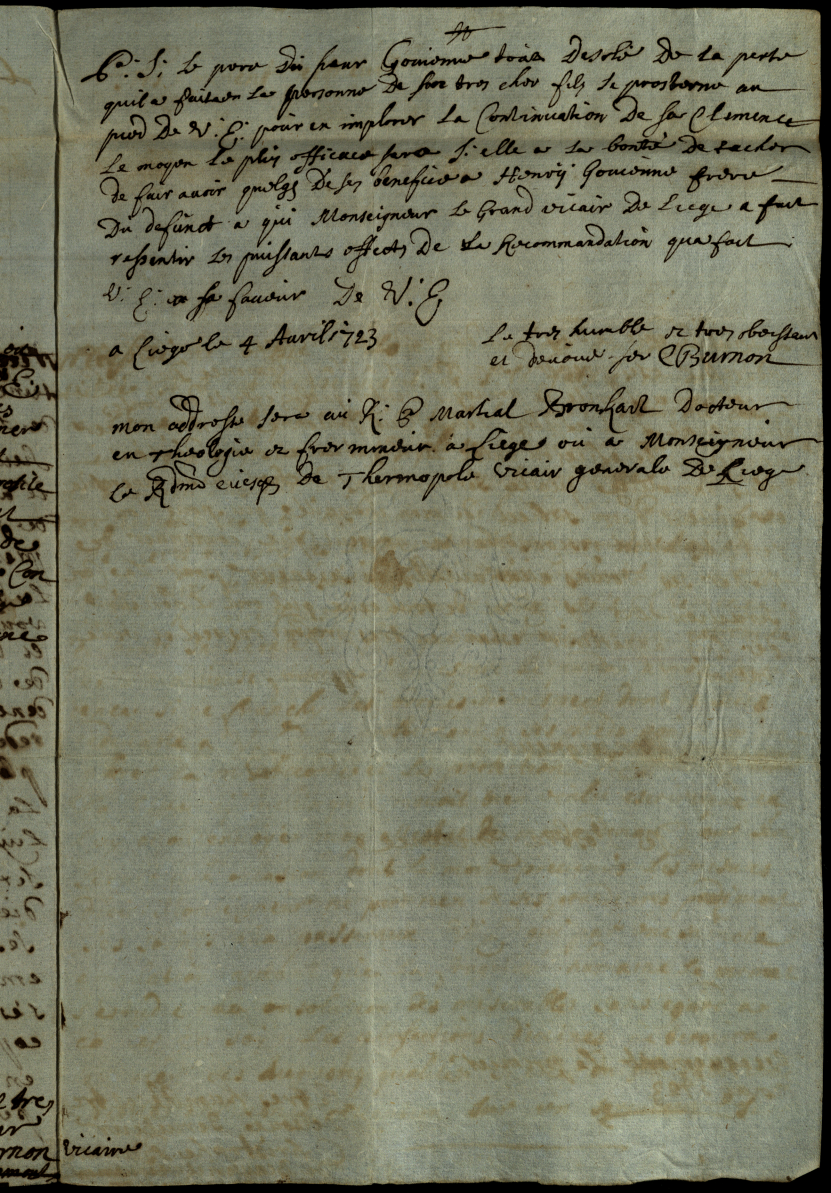 P: S: Le pere Du sieur Gouienne tout Desolé De La perte
quila faitaen La personne De son tres cher fils se prosterne au
pied De V: E: pour en implorer La Continuation De sa Clemence
Le moyen Le plus efficace sera s'elle a La bonté De tacher
de fair auoir quelqs De ses benefice a Henry Gouienne frere
Du defunct a qui Monseigneur Le Grand vicair De Liege a fait
ressentir Les puissants effects De La Recommandation qua fait
V: E: en sa faveur De V: E:
a Liege le 4 Avril 1723
Le tres humble et tres obeissant
et devoué ser CBurnon
mon addresse sera au R: P Martial Bronkart Docteur
en theologie et frer mineur a Liege ou a Monseigneur
Le Rdme evesq De Thermopole vicair generale De Liege
vicaire